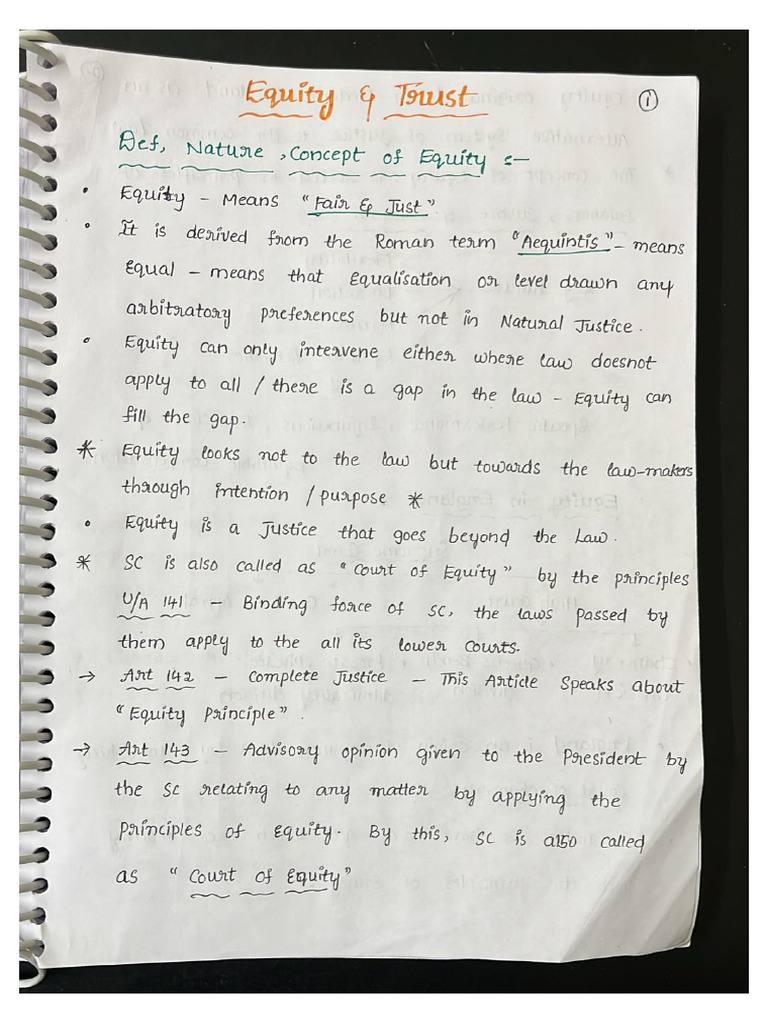 Equity & Trust
①
Def, Nature, Concept of Equity :-
• Equity - Means "Fair & Just"
• It is derived from the Roman term "Aequintis" - means
Equal - means that Equalisation or level drawn any
arbitratory preferences but not in Natural Justice.
• Equity can only intervene either where law doesnot
apply to all / there is a gap in the law - Equity can
fill the gap.
* Equity looks not to the law but towards the law-makers
through intention / purpose *
• Equity is a Justice that goes beyond the Law.
* SC is also called as "Court of Equity" by the principles
U/A 141 - Binding force of SC, the laws passed by
them apply to the all its lower courts.
→ Art 142 - Complete Justice - This Article Speaks about
"Equity Principle".
→ Art 143 - Advisory opinion given to the President by
the SC relating to any matter by applying the
Principles of Equity. By this, SC is also called
as "Court of Equity"